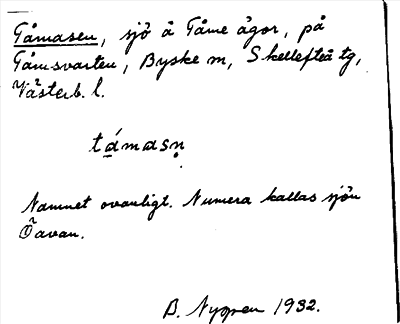 Tåmasen, sjö å Tåme ägor, på
Tåmsvarten, Byske m, Skellefteå tg,
Västerb. l.
támasṇ
Namnet ovanligt. Numera kallas sjön
Öavan.
B. Nygren 1932.